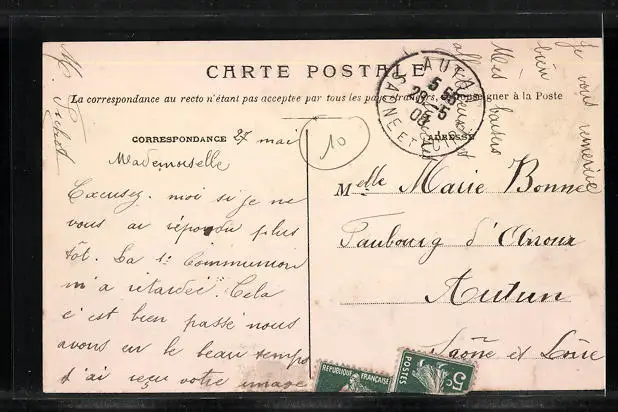 CARTE POSTALE
La correspondance au recto n'étant pas acceptée par tous les pays étrangers, se renseigner à la Poste
CORRESPONDANCE 27 mai
ADRESSE
Mademoiselle
Excusez-moi si je ne
vous ai répondu plus
tôt. La 1e Communion
m'a retardée. Cela
c'est bien passé nous
avons eu le beau temps
J'ai reçu votre image
Je vous remercie
bien
Mes
M.
10
Melle Marie Bonnee
Faubourg d'Arroux
Autun
Saône et Loire
AUTUN
5 55
28-5
08
SAONE ET
REPUBLIQUE FRANÇAISE
POSTES
5c